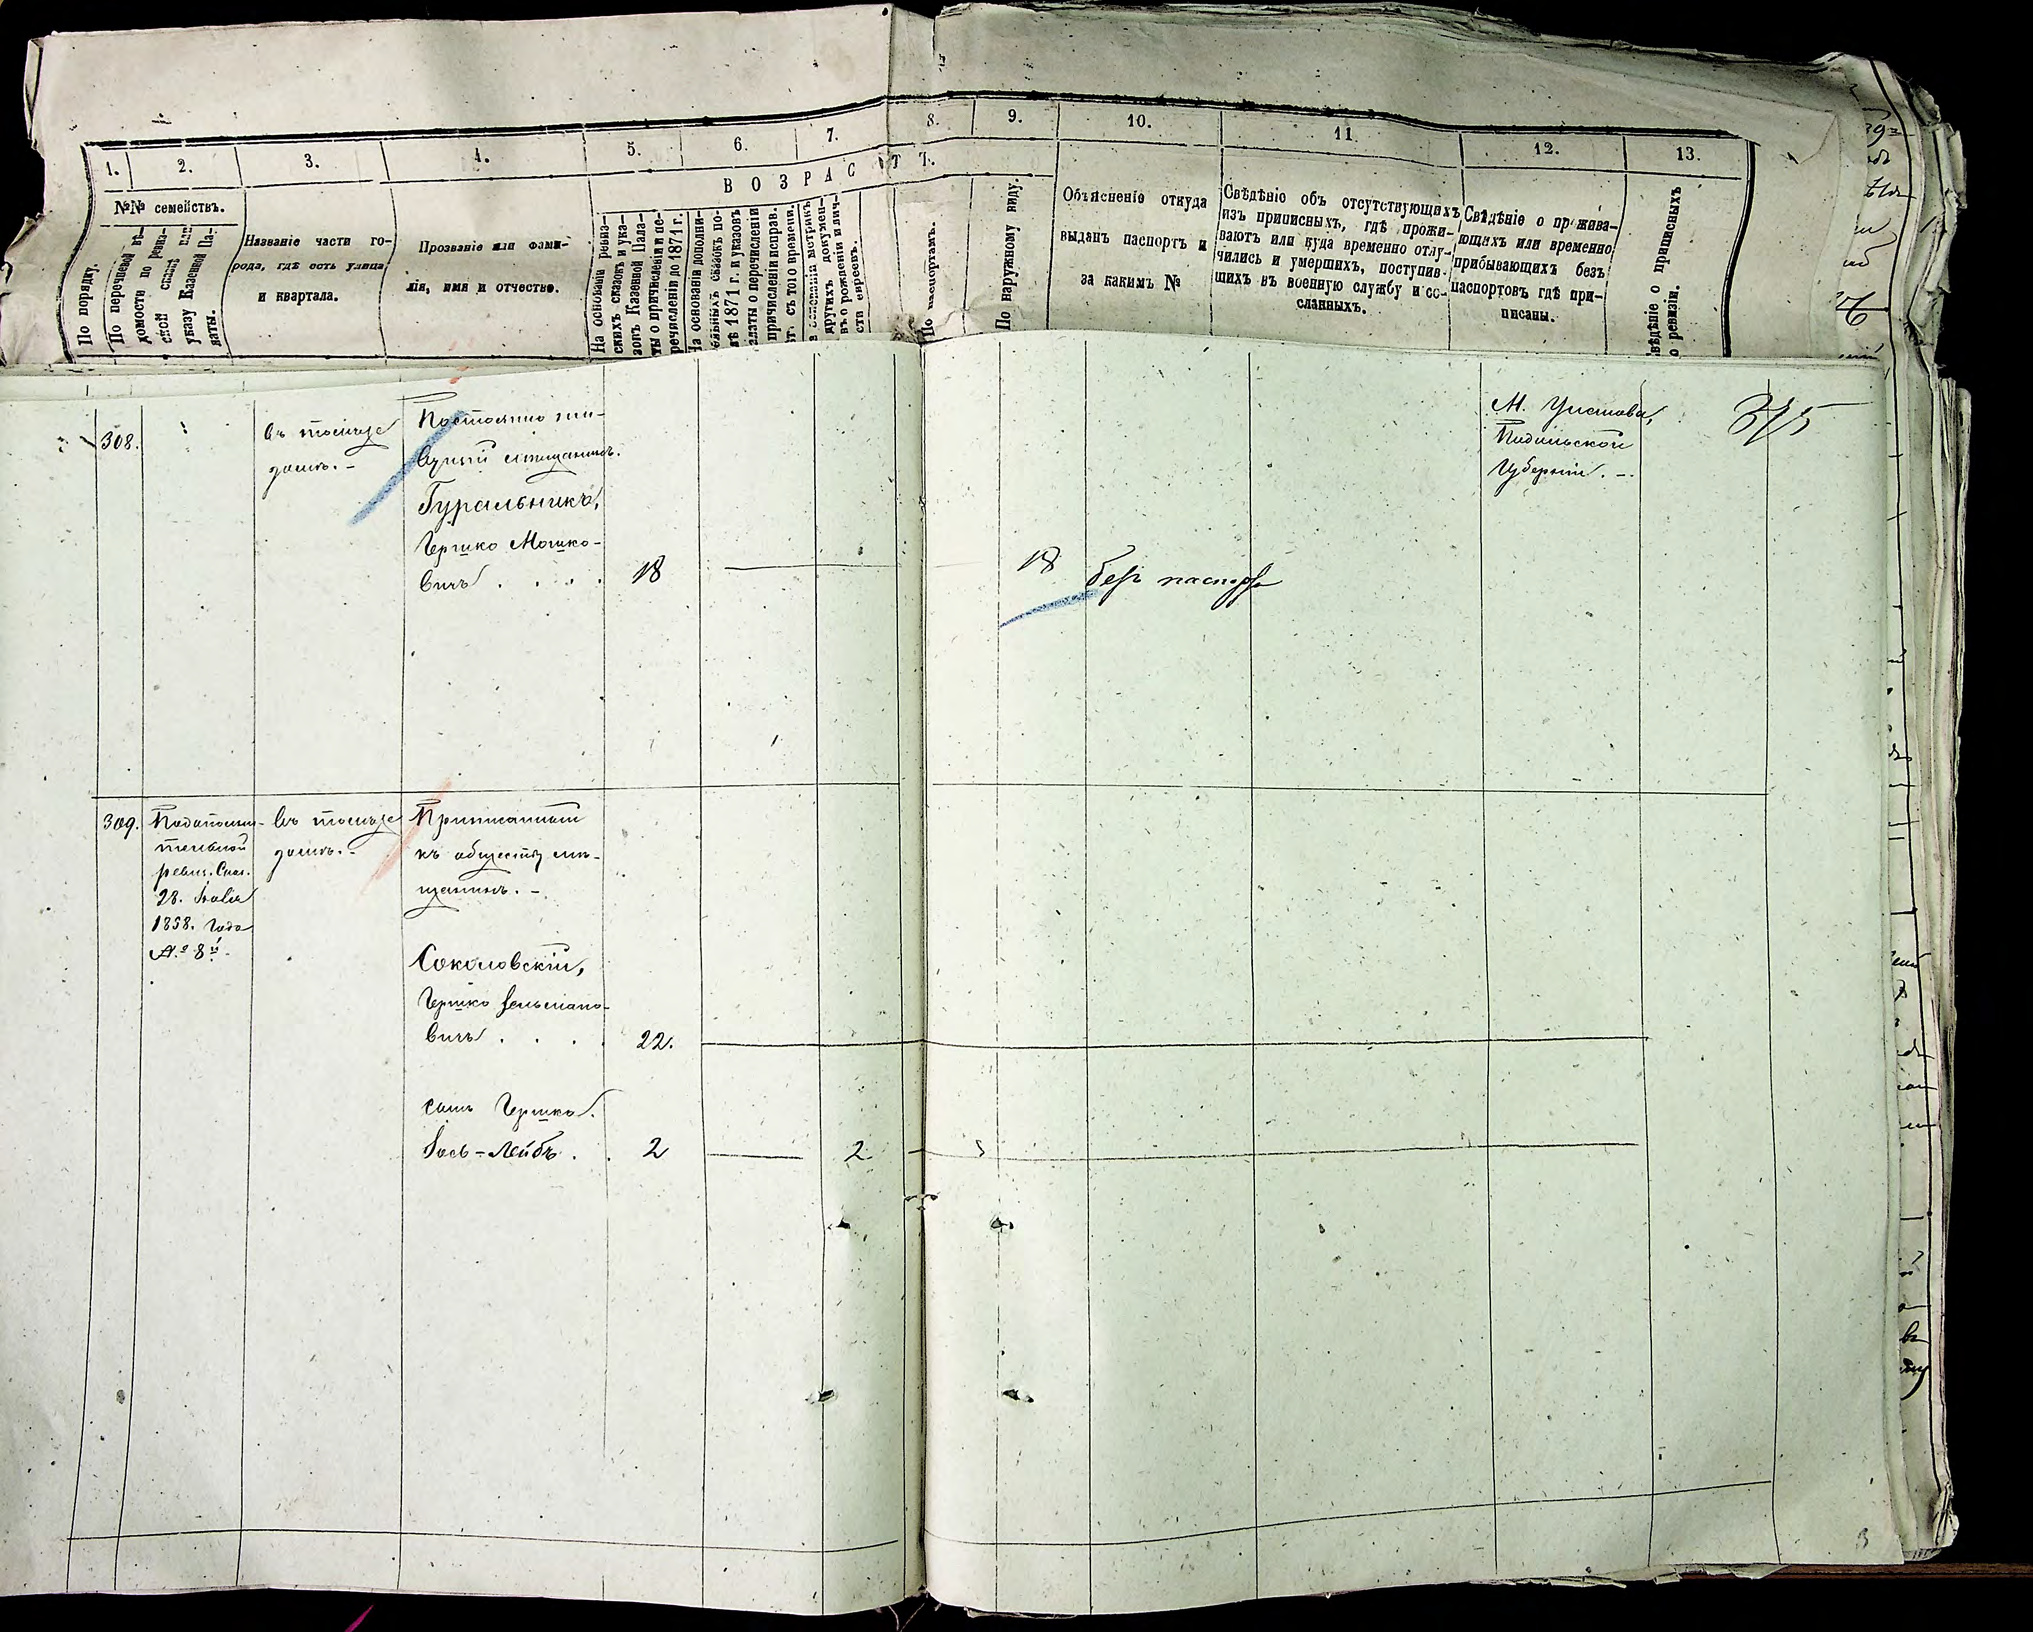 1. 2. 3. 4. 5. 6. 7. 8. 9. 10. 11. 12. 13.
ВОЗРАСТЪ.
По порядку.
№№ семействъ.
По перечневой вѣ-
домости по ревиз-
ской сказкѣ или
указу Казенной Па-
латы.
Названіе части го-
рода, гдѣ есть улица
и квартала.
Прозваніе или фами-
лія, имя и отчество.
На основаніи ревиз-
скихъ сказокъ и ука-
зовъ Казенной Пала-
ты о причисленіи и пе-
речисленіи до 1871 г.
На основаніи дополни-
тельныхъ сказокъ по-
слѣ 1871 г. и указовъ
палаты о перечисленіи
причисленіи исправ.
съ того времени.
основаніи метрикъ
другихъ докумен-
въ о рожденіи и лич-
сти евреевъ.
По паспортамъ.
По наружному виду.
Объясненіе откуда
выданъ паспортъ и
за какимъ №
Свѣдѣніе объ отсутствующихъ
изъ приписныхъ, гдѣ прожи-
ваютъ или куда временно отлу-
чились и умершихъ, поступив-
шихъ въ военную службу и со-
сланныхъ.
Свѣдѣніе о прожива-
ющихъ или временно
прибывающихъ безъ
паспортовъ гдѣ при-
писаны.
Свѣдѣніе о приписныхъ
о ревизіи.
308.
въ томъже
домѣ. -
Постоянно жи-
вущій мѣщанинъ.
Гуральникъ,
Гершко Мошко-
вичъ . . . .
18
18
безъ паспорта
М.
Подольской
Губерніи. -.
375
309.
Дополни-
тельной
ревиз. Сказ.
28. Іюля
1858. Года
№ 8й.
въ томъже
домѣ. -
Приписанный
къ обществу мѣ-
щанинъ. -
Соколовскій,
Гершко Зельмано-
вичъ . . . .
22.
сынъ Гершка.
Іось-Лейбъ . .
2
2